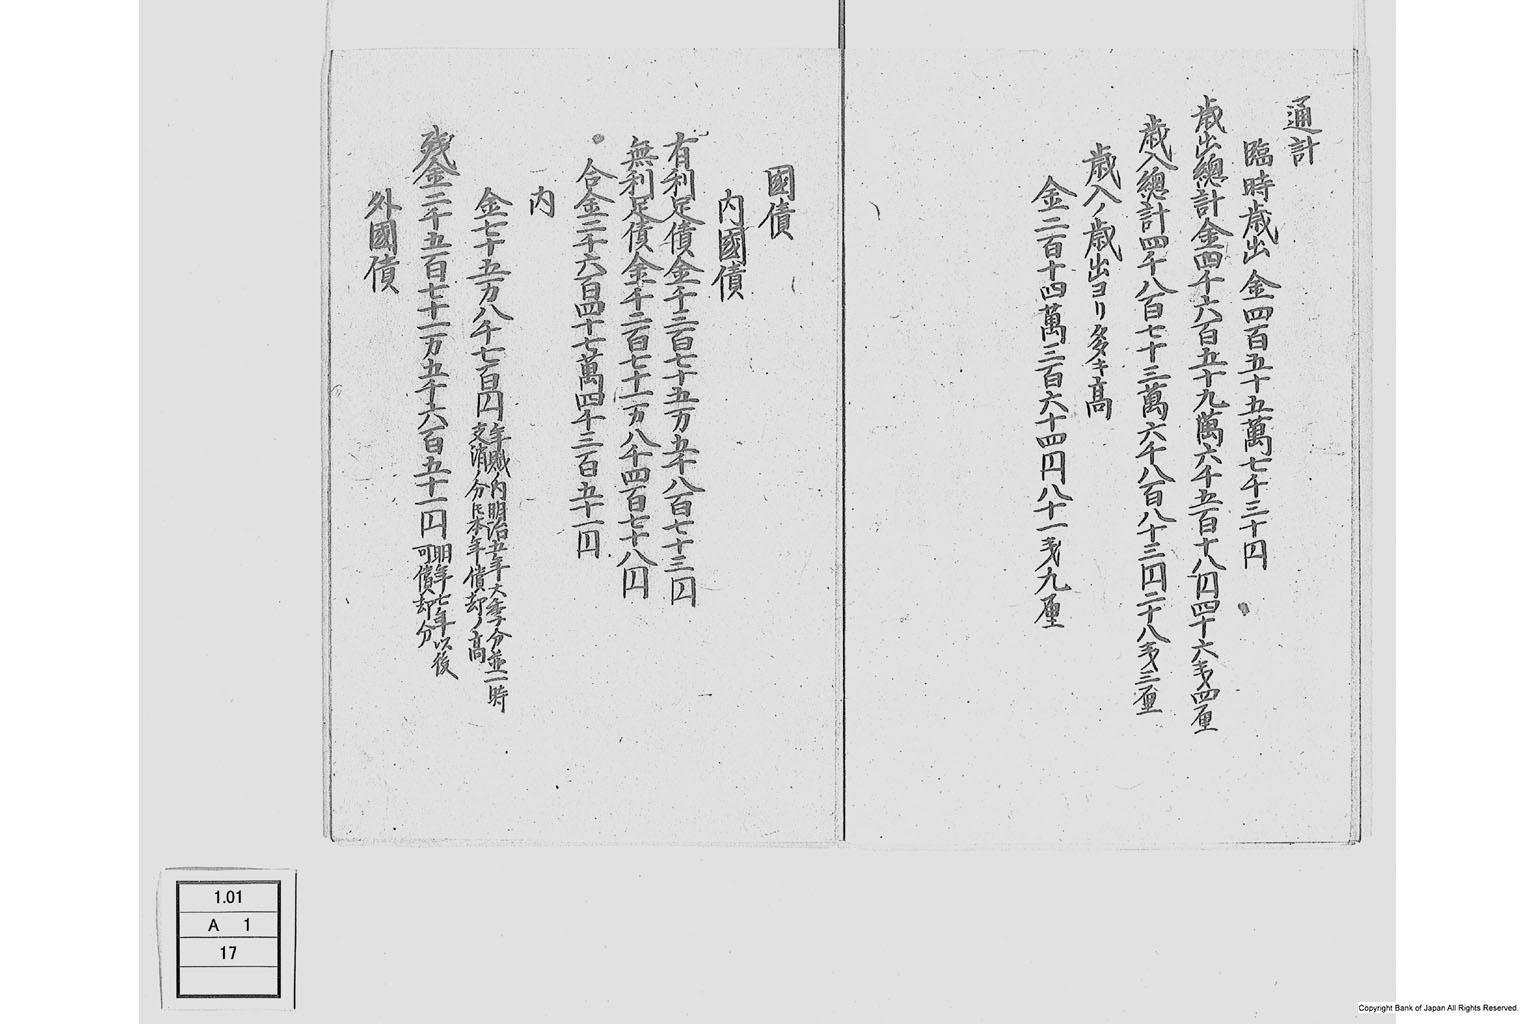 通計
臨時歳出金四百五十五萬七千三十円
歳出總計金四千六百五十九萬六千五百十八円四十六銭四厘
歳入總計四千八百七十三萬六千八百八十三円二十八銭三厘
歳入ノ歳出ヨリ多キ高
金二百十四萬三百六十四円八十一銭九厘
國債
内國債
有利足債金千三百七十五万五千八百七十三円
無利足債金千二百七十一万八千四百七十八円
合金二千六百四十七萬四千三百五十一円
内
金七十五万八千七百円
年賦ノ内明治五年六年分並一時
支消ノ分共本年償却ノ高
残金二千五百七十一万五千六百五十一円
明年七年以後
可償却分
外國債
1.01
A 1
17
Copyright Bank of Japan All Rights Reserved.